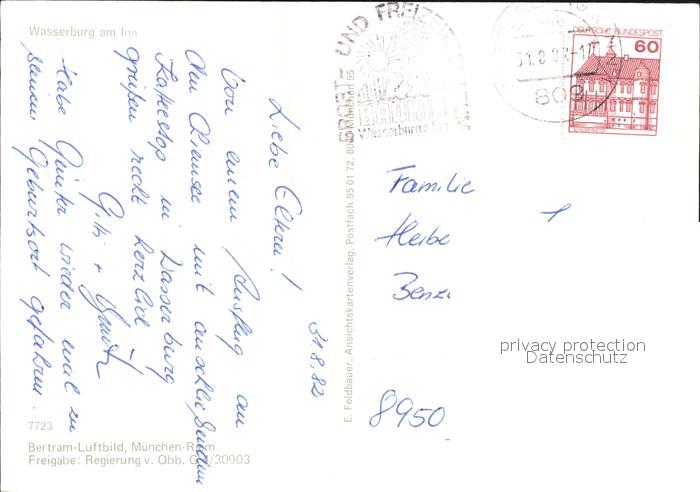 Wasserburg am Inn
31.8.82
Liebe Eltern!
Von einem Ausflug an
den Chiemsee mit anschließendem
Kaffeestop in Wasserburg
grüßen recht herzlich
Gitti +
Habe Günter wieder mal zu
seinem Geburtsort gefahren.
7723
Bertram-Luftbild, München-Riem
Freigabe: Regierung v. Obb. G 30903
E. Foldbauer, Ansichtskartenverlag, Postfach 95 01 72, 8000 München 95
SPORT- UND FREIZEIT
Wasserburg a. Inn
31.8.82-17
809
DEUTSCHE BUNDESPOST
60
Familie
Heibe
Benz
8950
privacy protection
Datenschutz